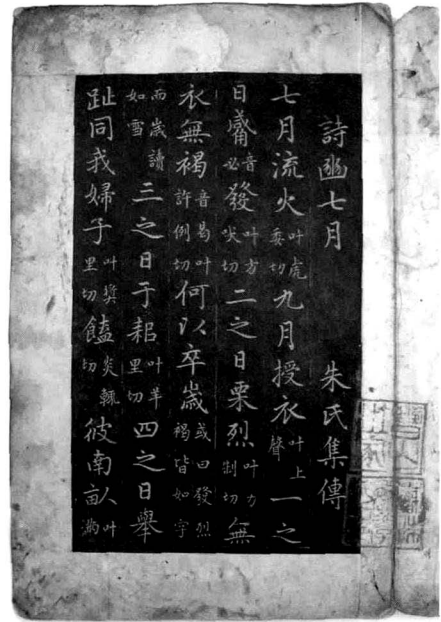 詩豳七月 朱氏集傳
七月流火叶虎委切九月授衣叶上聲一之
日觱音必發叶方吠切二之日栗烈叶力制切無
衣無褐音曷叶許例切何以卒歲或曰發烈褐皆如字
而歲讀如雪三之日于耜叶羊里切四之日舉
趾同我婦子叶獎里切饁炎輒切彼南畝叶滿